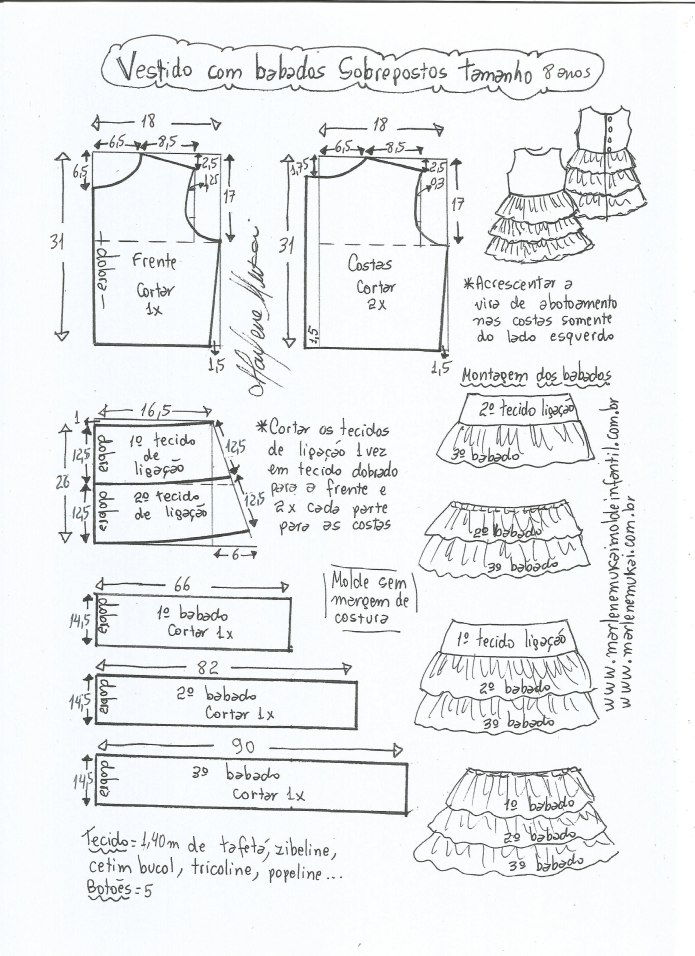 Vestido com babados Sobrepostos tamanho 8 anos
18
6,5 8,5
6,5
2,5
1,25
17
31
Frente
Cortar
1x
dobra
1,5
18
6,5 8,5
1,75
2,5
0,3
17
31
Costas
Cortar
2x
1,5
1,5
Marlene Mukai
*Acrescentar a
vira de abotoamento
nas costas somente
do lado esquerdo
Montagem dos babados
2º tecido ligação
3º babado
2º babado
3º babado
1º tecido ligação
2º babado
3º babado
1º babado
2º babado
3º babado
www.marlenemukaimoldeinfantil.com.br
www.marlenemukai.com.br
16,5
1
12,5
26
12,5
dobra
1º tecido
de
ligação
12,5
dobra
2º tecido
de ligação
12,5
6
*Cortar os tecidos
de ligação 1 vez
em tecido dobrado
para a frente e
2x cada parte
para as costas
Molde sem
margem de
costura
66
14,5
dobra
1º babado
Cortar 1x
82
14,5
dobra
2º babado
Cortar 1x
90
14,5
dobra
3º babado
Cortar 1x
Tecido = 1,40m de tafetá, zibeline,
cetim bucol, tricoline, popeline...
Botões = 5